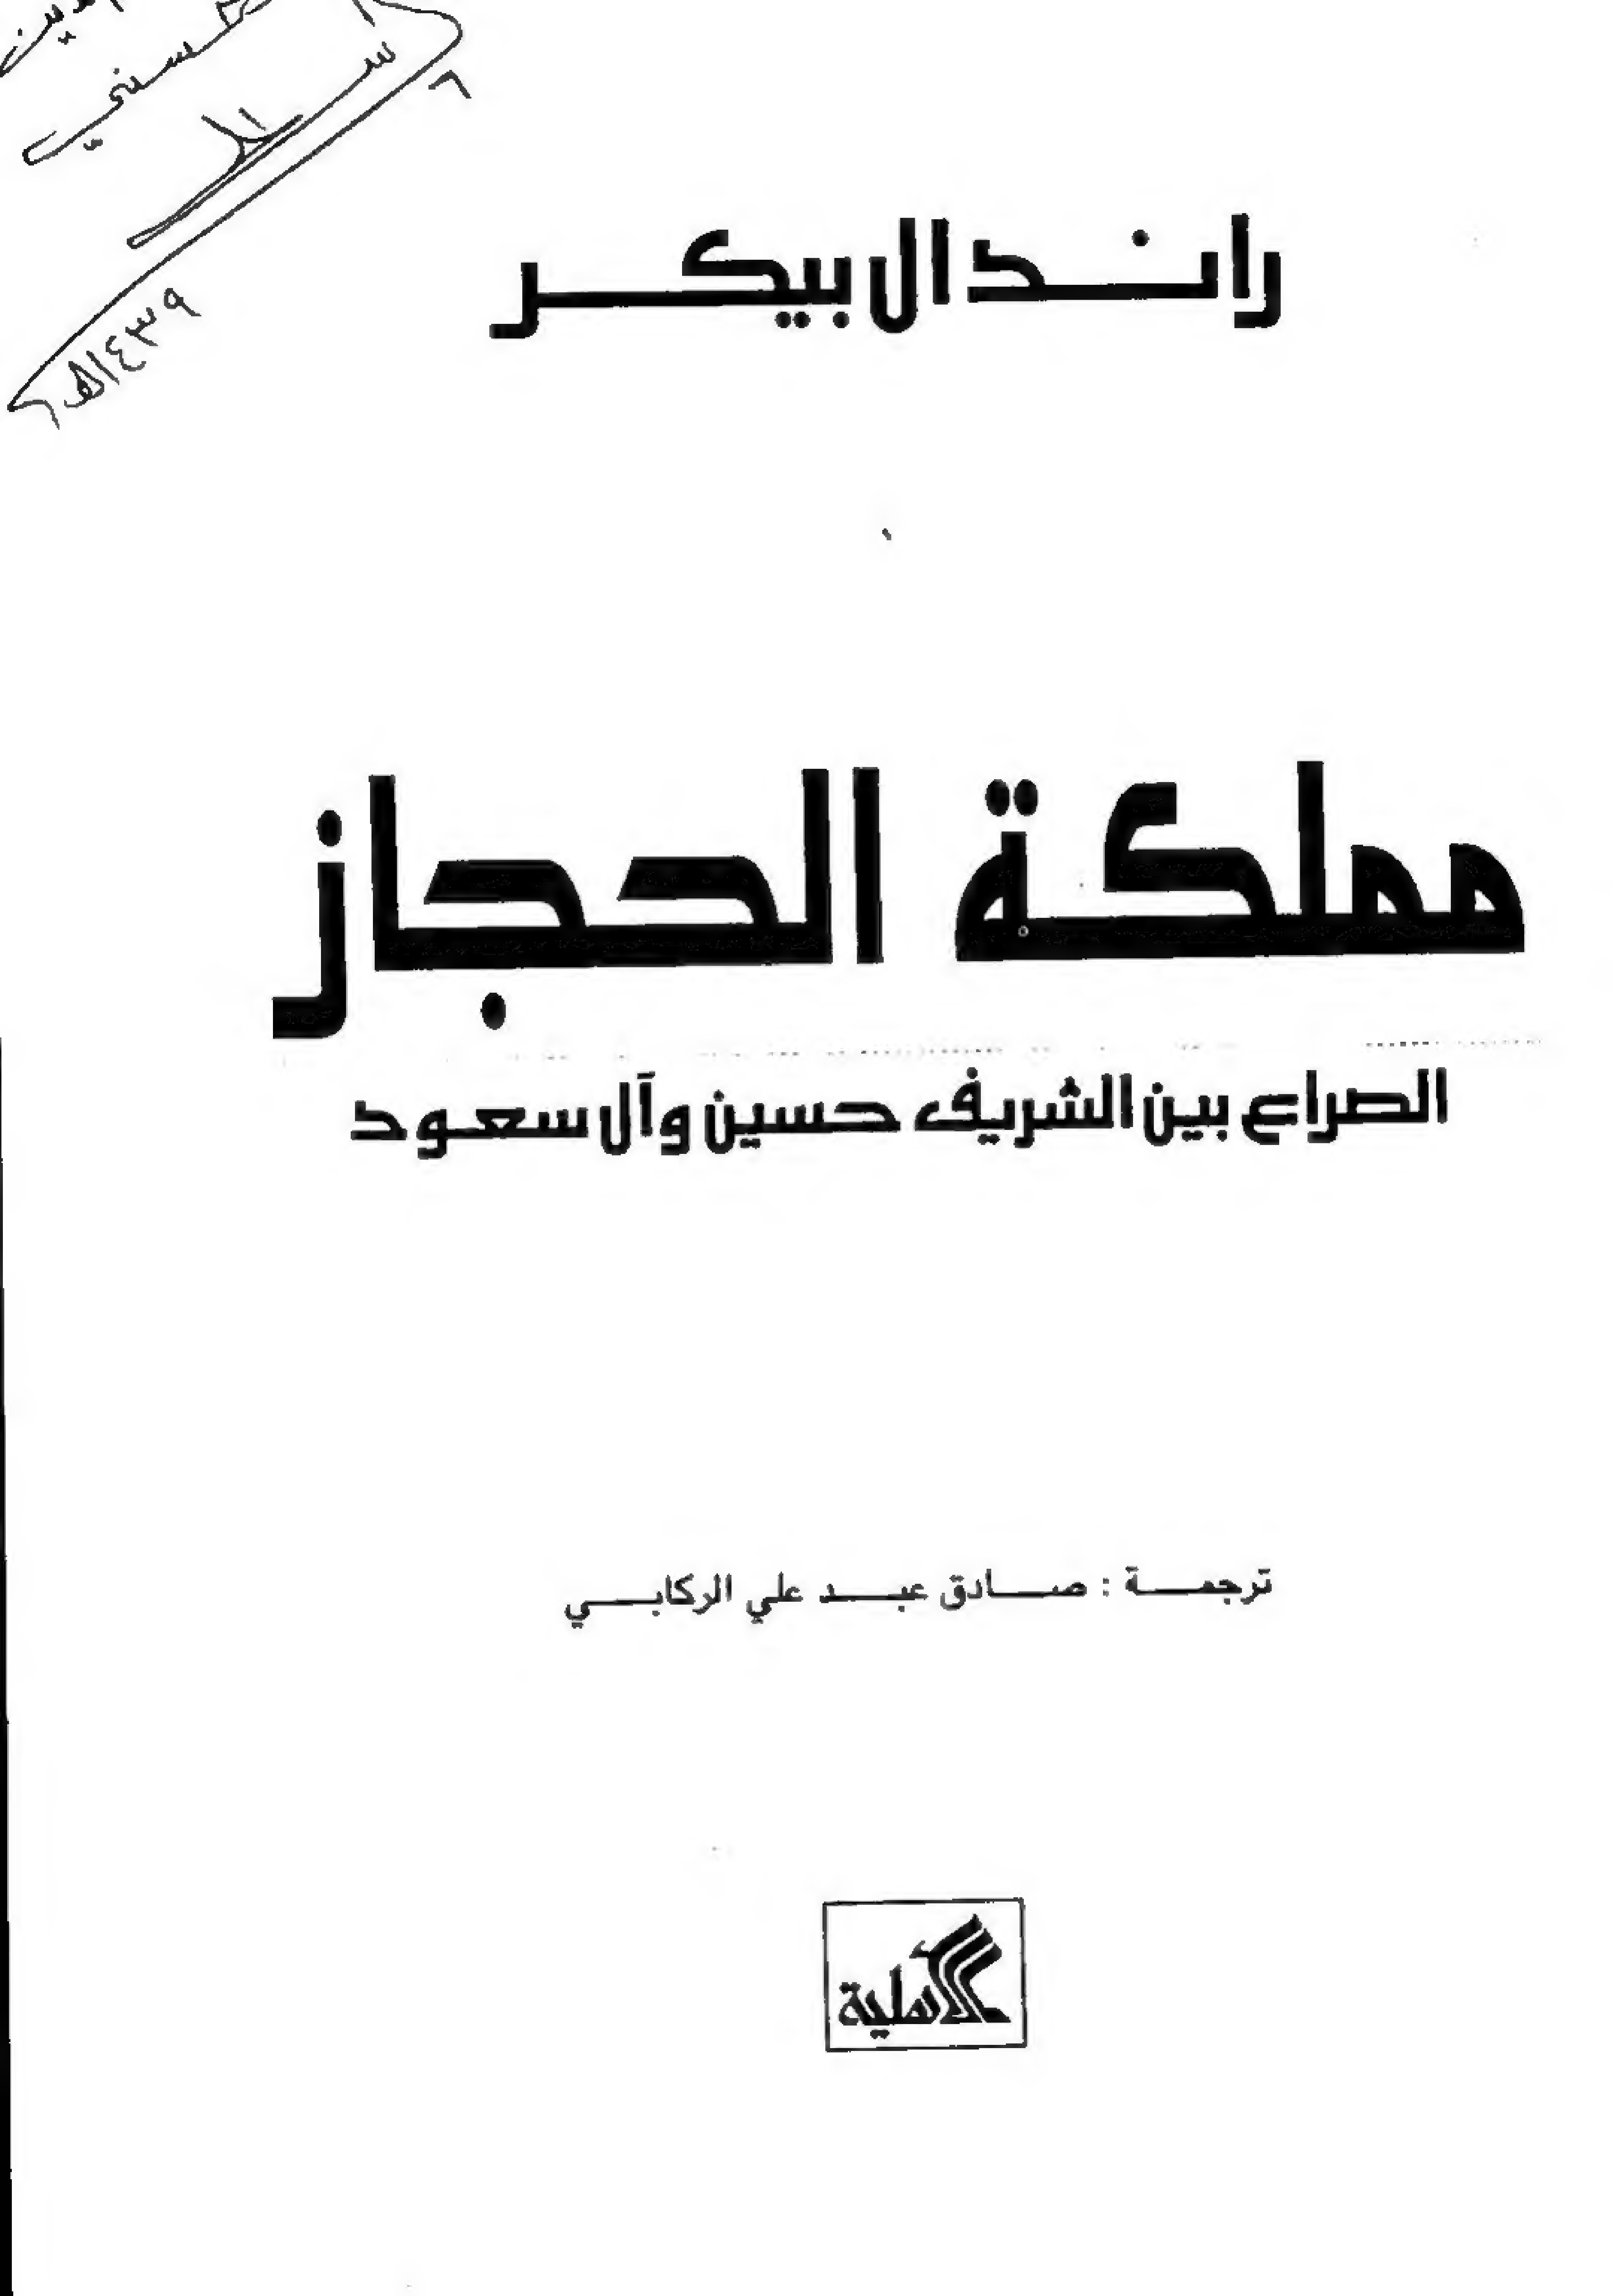 سنجي
١٤٣٩هـ
رانـدال بيكـر
مملكة الحجاز
الصراع بين الشريف حسين وآل سعود
ترجمـة : صـادق عبـد علي الركابـي
الأهلية